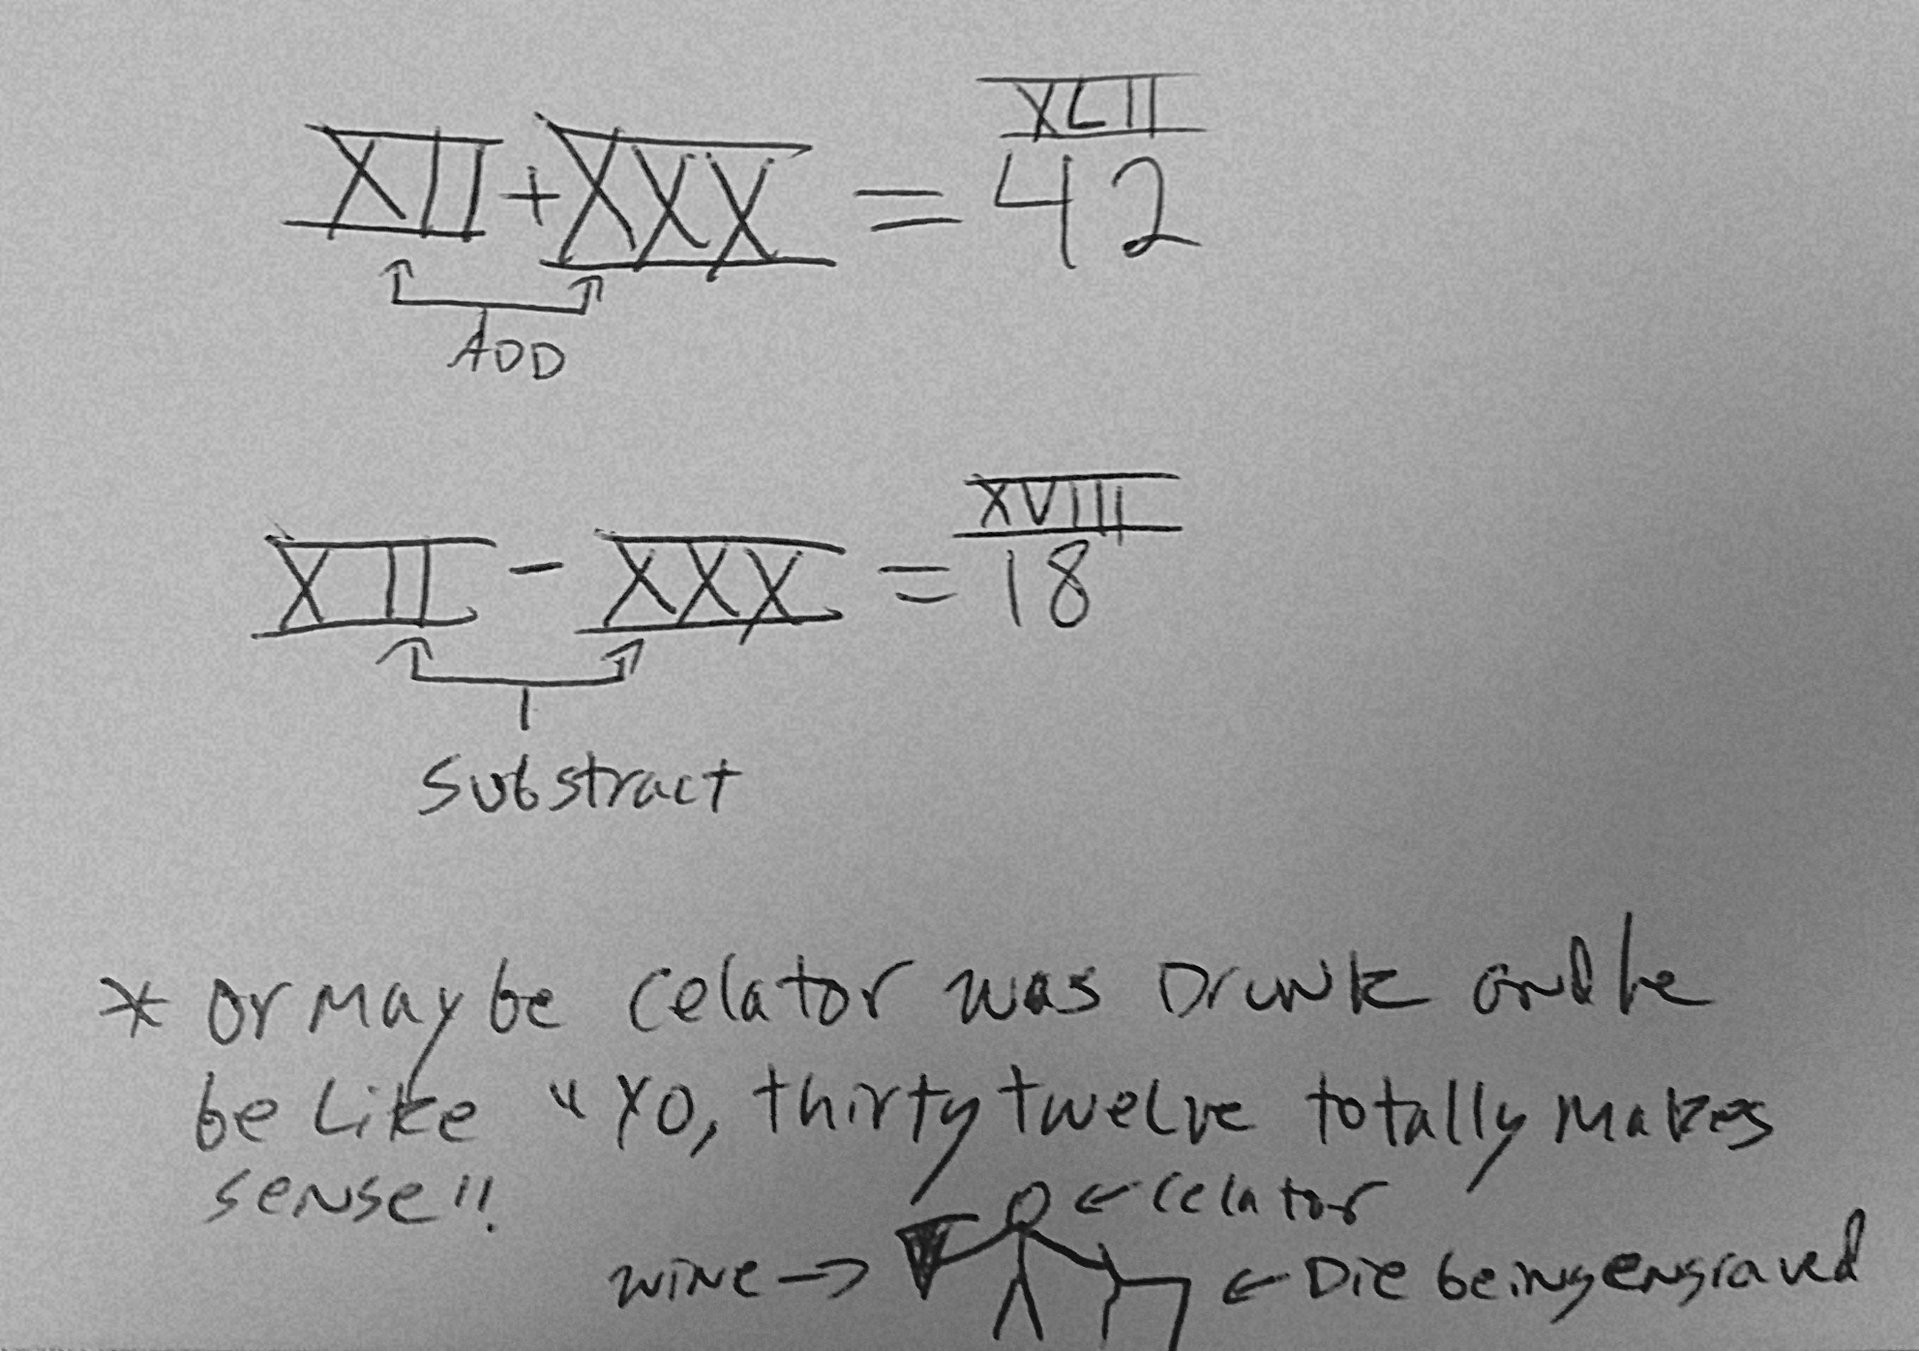 XLII
XII + XXX = 42
ADD
XVIII
XII - XXX = 18
Substract
* Or maybe celator was Drunk and he
be Like "YO, thirty twelve totally makes
sense"!
← Celator
wine → ← Die being engraved